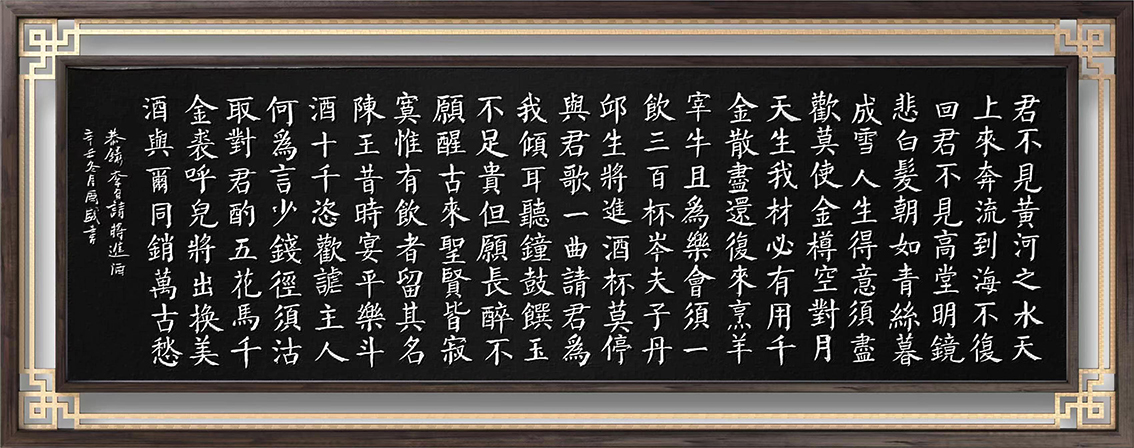 君不見黃河之水天
上來奔流到海不復
回君不見高堂明鏡
悲白髮朝如青絲暮
成雪人生得意須盡
歡莫使金樽空對月
天生我材必有用千
金散盡還復來烹羊
宰牛且爲樂會須一
飲三百杯岑夫子丹
邱生將進酒杯莫停
與君歌一曲請君爲
我傾耳聽鐘鼓饌玉
不足貴但願長醉不
願醒古來聖賢皆寂
寞惟有飲者留其名
陳王昔時宴平樂斗
酒十千恣歡謔主人
何爲言少錢徑須沽
取對君酌五花馬千
金裘呼兒將出換美
酒與爾同銷萬古愁
恭錄李白詩將進酒
冬月書